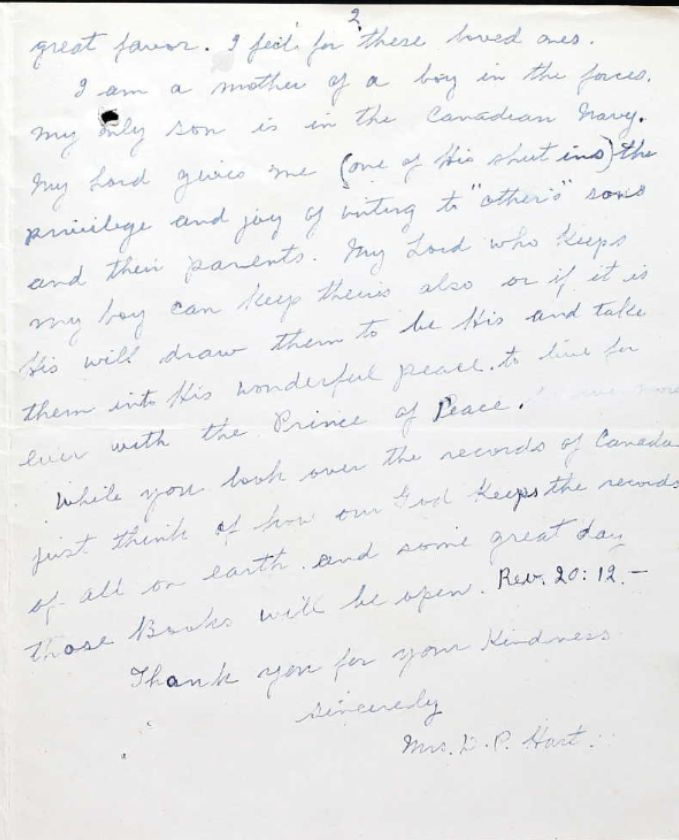 2
great favor. I feel for these loved ones.
I am a mother of a boy in the forces.
My only son is in the Canadian Navy.
My Lord gives me (one of His shut ins) the
privilege and joy of writing to "other's" sons
and their parents. My Lord who keeps
my boy can keep theirs also or if it is
His will draw them to be His and take
them into His wonderful peace. to live for
ever with the Prince of Peace.
While you look over the records of Canada
just think of how our God keeps the records
of all on earth. and some great day
those Books will be open. Rev. 20:12.—
Thank you for your kindness
sincerely
Mrs. D. P. Hart.